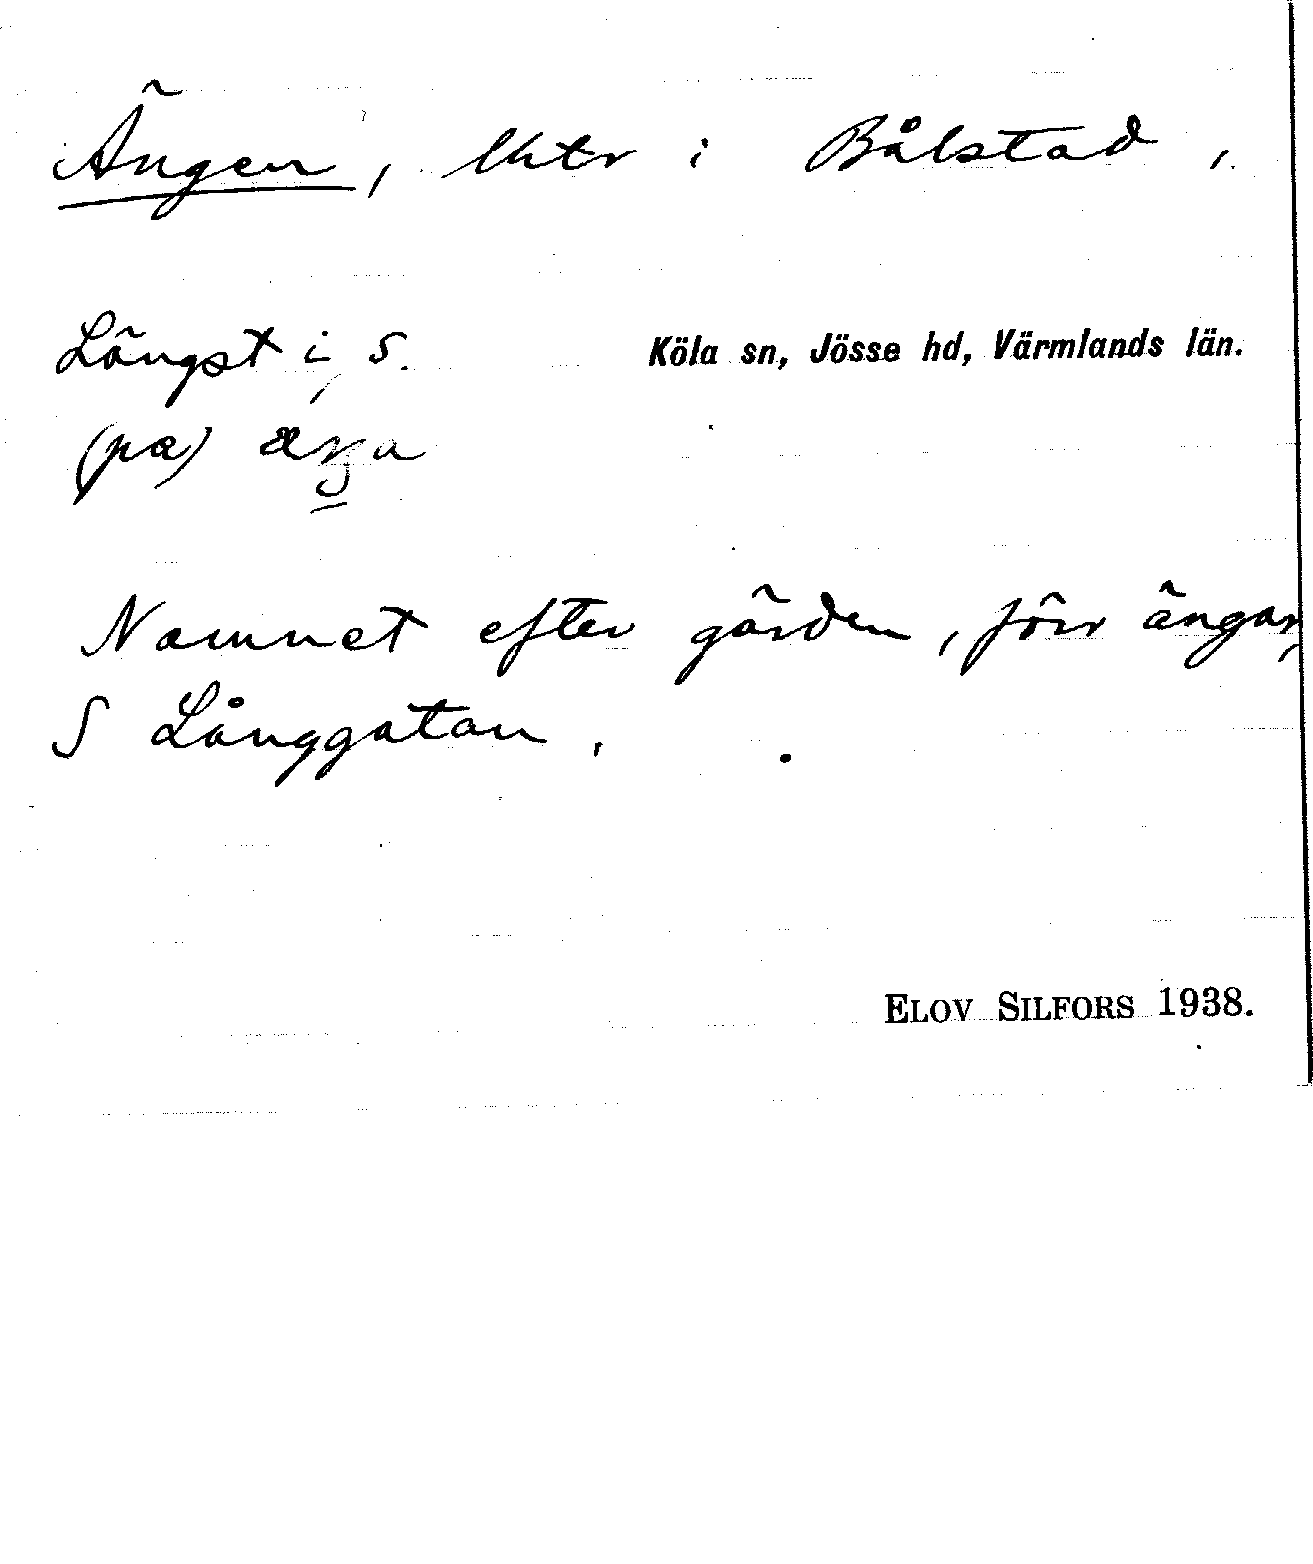 Ängen, lhtr i Bålstad,
Längst i S. Köla sn, Jösse hd, Värmlands län.
(pæ)
Namnet efter gärden, förr ängar,
S Långgatan.
ELOV SILFORS 1938.